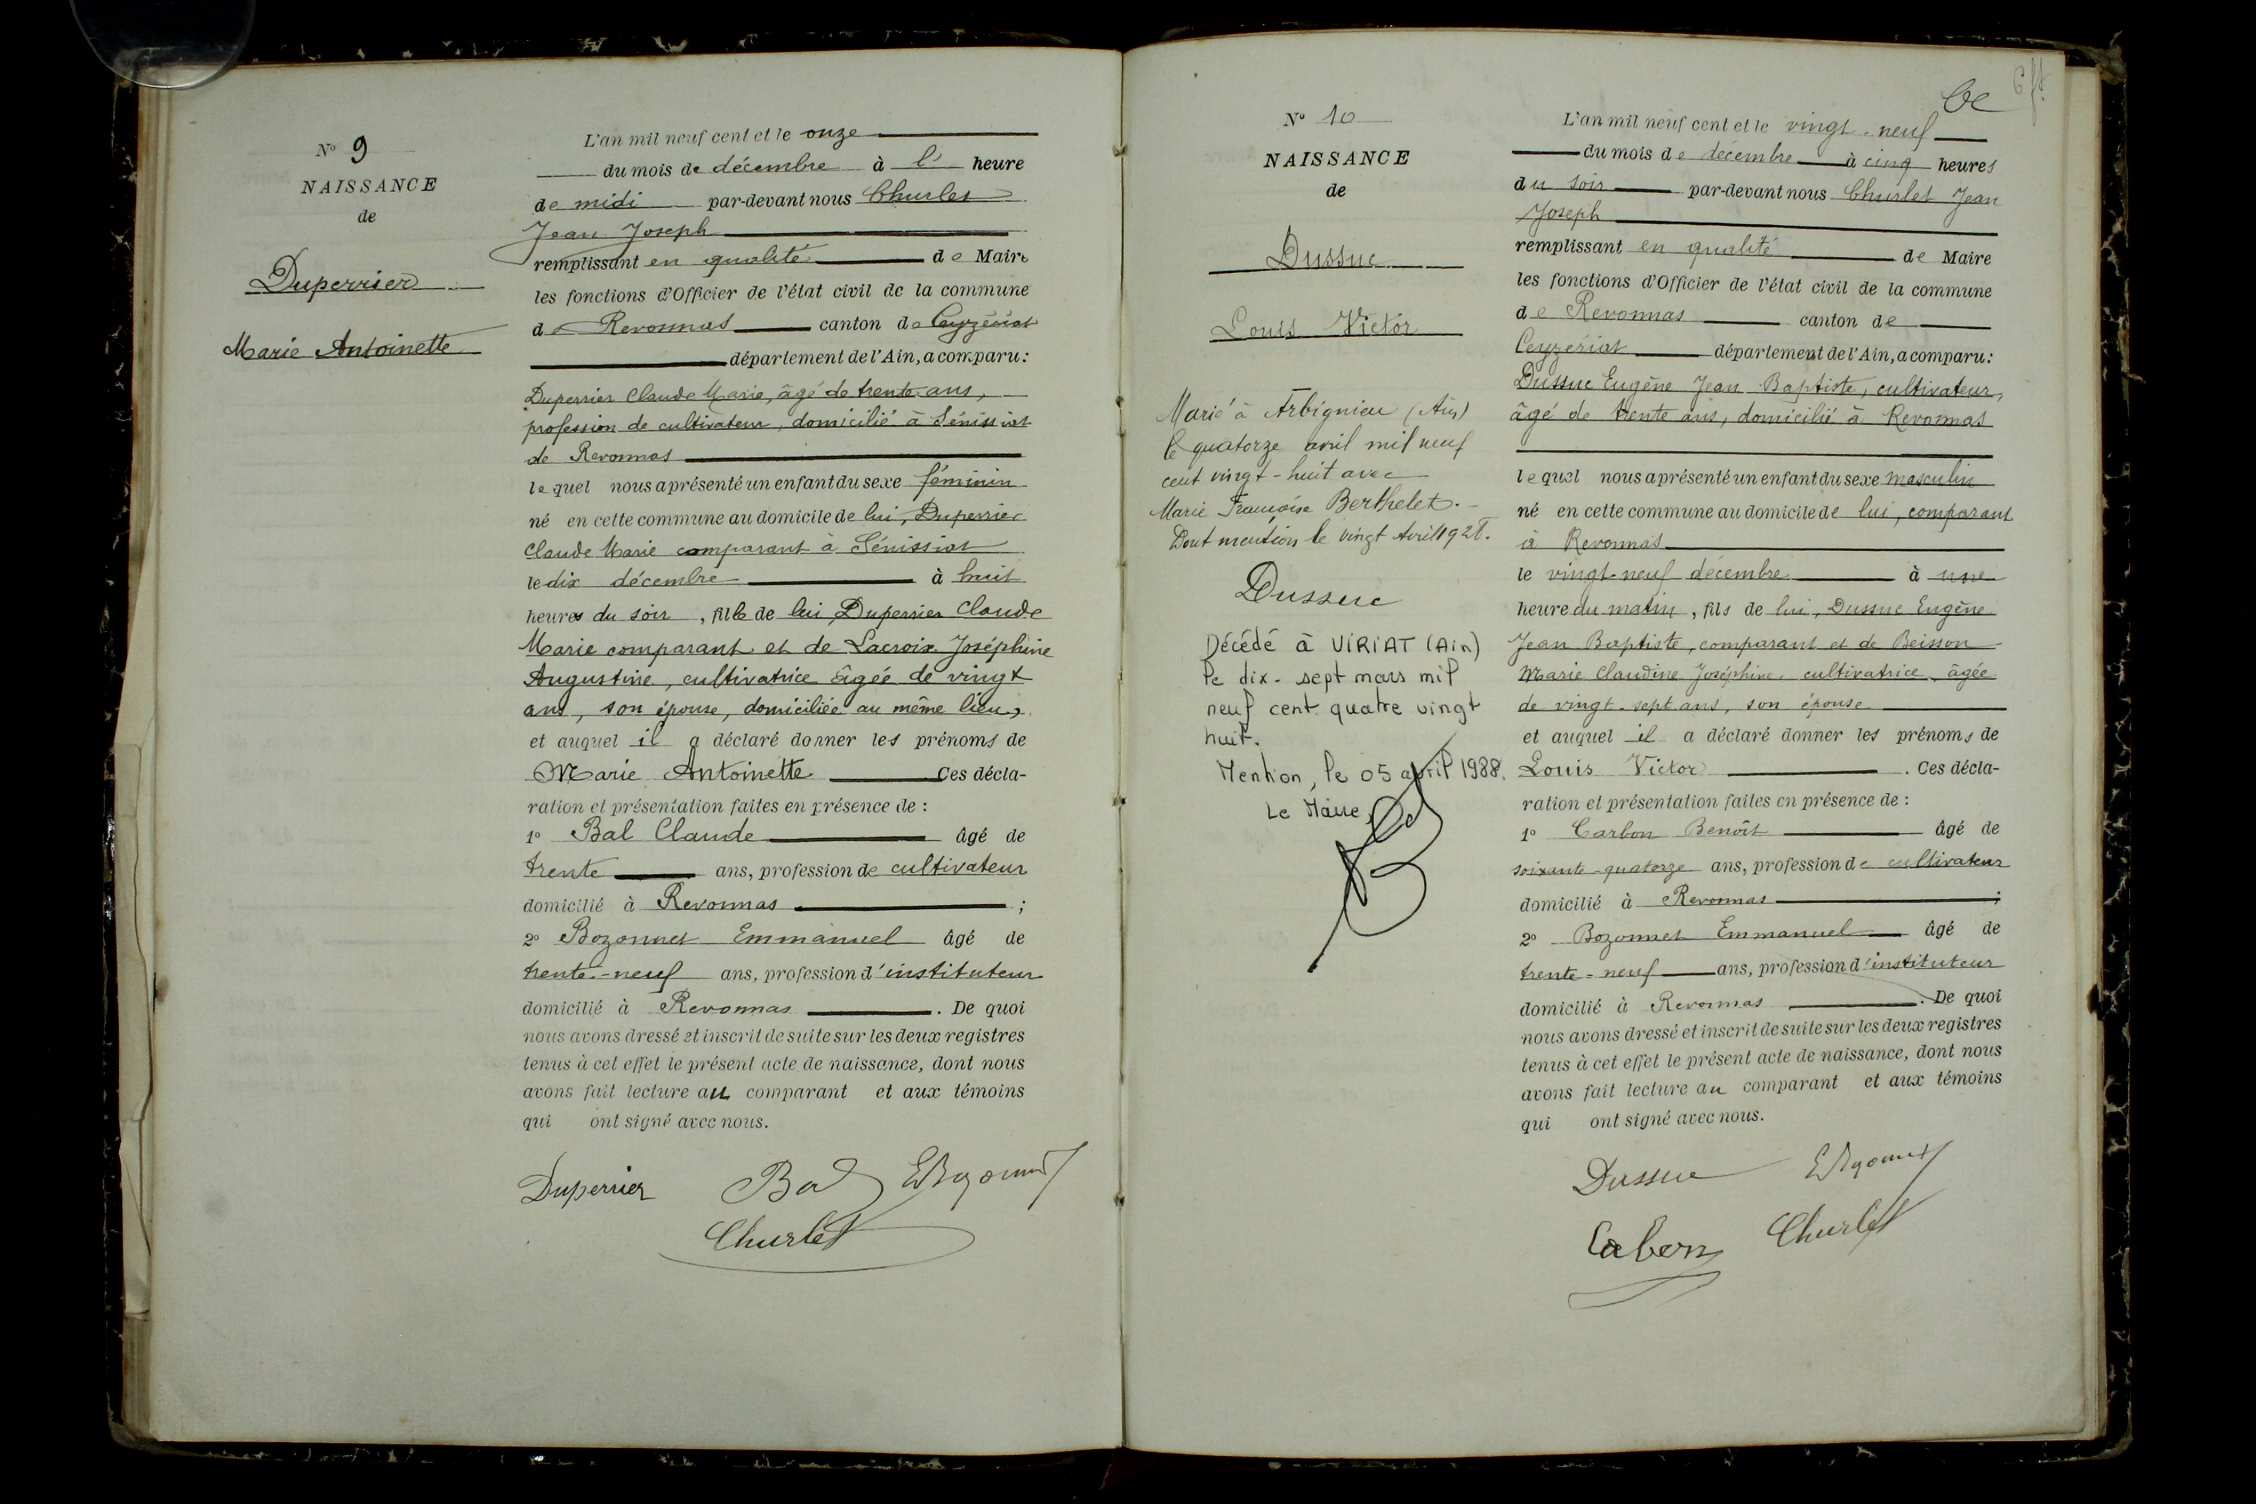 N° 9
NAISSANCE
de
Duperrier
Marie Antoinette
L'an mil neuf cent et le onze
du mois de décembre à l' heure
de midi par-devant nous Churlet
Jean Joseph
remplissant en qualité de Maire
les fonctions d'Officier de l'état civil de la commune
de Revonnas canton de Ceyzériat
département de l'Ain, a comparu :
Duperrier Claude Marie, âgé de trente ans,
profession de cultivateur, domicilié à Sénissiat
de Revonnas
lequel nous a présenté un enfant du sexe féminin
né en cette commune au domicile de lui, Duperrier
Claude Marie comparant à Sénissiat
le dix décembre à huit
heures du soir, fille de lui, Duperrier Claude
Marie comparant et de Lacroix Joséphine
Augustine, cultivatrice âgée de vingt
ans, son épouse, domiciliée au même lieu,
et auquel il a déclaré donner les prénoms de
Marie Antoinette Ces décla-
ration et présentation faites en présence de :
1° Bal Claude âgé de
trente ans, profession de cultivateur
domicilié à Revonnas ;
2° Bozonnet Emmanuel âgé de
trente-neuf ans, profession d'instituteur
domicilié à Revonnas . De quoi
nous avons dressé et inscrit de suite sur les deux registres
tenus à cet effet le présent acte de naissance, dont nous
avons fait lecture au comparant et aux témoins
qui ont signé avec nous.
Duperrier Bal EBozonnet
Churlet
N° 10
NAISSANCE
de
Dussuc
Louis Victor
Marié à Arbignieu (Ain)
le quatorze avril mil neuf
cent vingt-huit avec
Marie Françoise Berthelet.
Dont mention le vingt Avril 1928.
Dussuc
Décédé à VIRIAT (Ain)
le dix-sept mars mil
neuf cent quatre vingt
huit.
Mention, le 05 avril 1988.
Le Maire,
L'an mil neuf cent et le vingt-neuf
du mois de décembre à cinq heures
du soir par-devant nous Churlet Jean
Joseph
remplissant en qualité de Maire
les fonctions d'Officier de l'état civil de la commune
de Revonnas canton de
Ceyzériat département de l'Ain, a comparu :
Dussuc Eugène Jean Baptiste, cultivateur,
âgé de trente ans, domicilié à Revonnas
lequel nous a présenté un enfant du sexe masculin
né en cette commune au domicile de lui, comparant
à Revonnas
le vingt-neuf décembre à une
heure du matin, fils de lui, Dussuc Eugène
Jean Baptiste, comparant et de Beisson
Marie Claudine Joséphine, cultivatrice, âgée
de vingt-sept ans, son épouse
et auquel il a déclaré donner les prénoms de
Louis Victor . Ces décla-
ration et présentation faites en présence de :
1° Carbon Benoît âgé de
soixante-quatorze ans, profession de cultivateur
domicilié à Revonnas ;
2° Bozonnet Emmanuel âgé de
trente-neuf ans, profession d'instituteur
domicilié à Revonnas . De quoi
nous avons dressé et inscrit de suite sur les deux registres
tenus à cet effet le présent acte de naissance, dont nous
avons fait lecture au comparant et aux témoins
qui ont signé avec nous.
Dussuc EBozonnet
Churlet